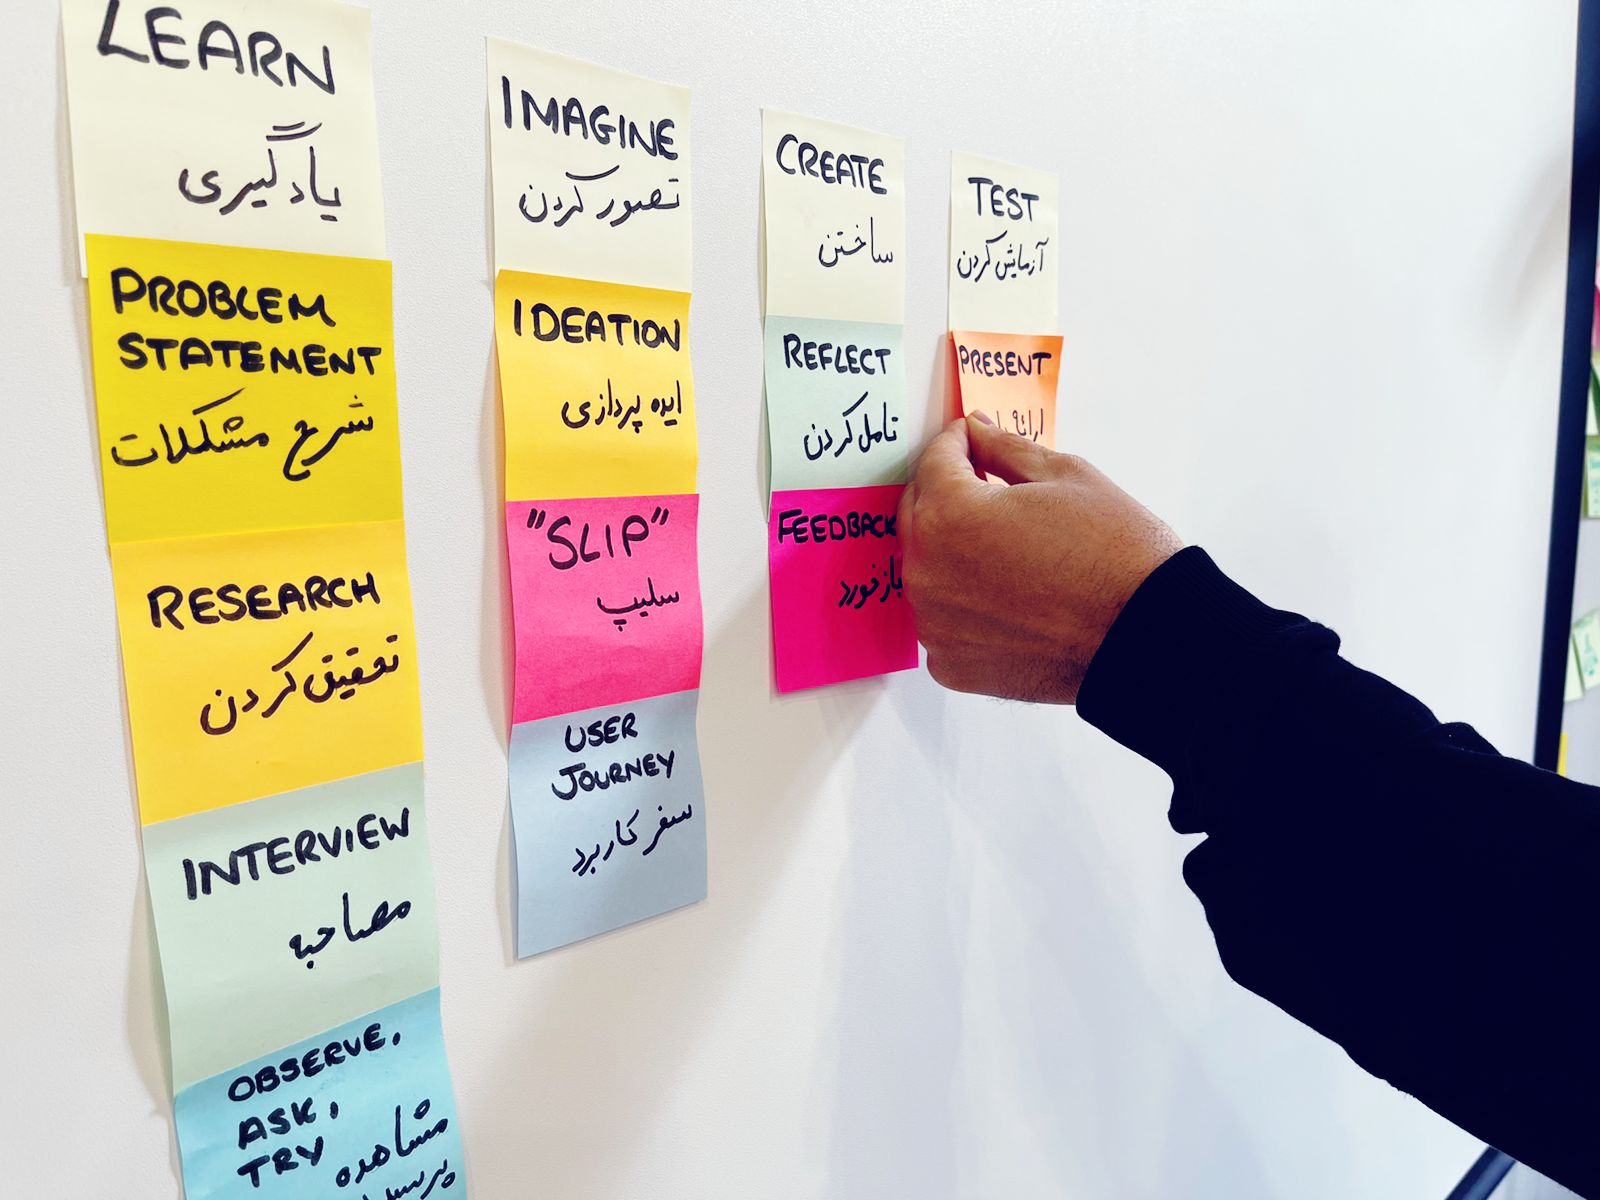 LEARN
یادگیری
PROBLEM
STATEMENT
شرح مشکلات
RESEARCH
تحقیق کردن
INTERVIEW
مصاحبه
OBSERVE,
ASK,
TRY
مشاهده
IMAGINE
تصور کردن
IDEATION
ایده پردازی
"SLIP"
سلیپ
USER
JOURNEY
سفر کاربرد
CREATE
ساختن
REFLECT
تامل کردن
FEEDBACK
بازخورد
TEST
آزمایش کردن
PRESENT
ارائه